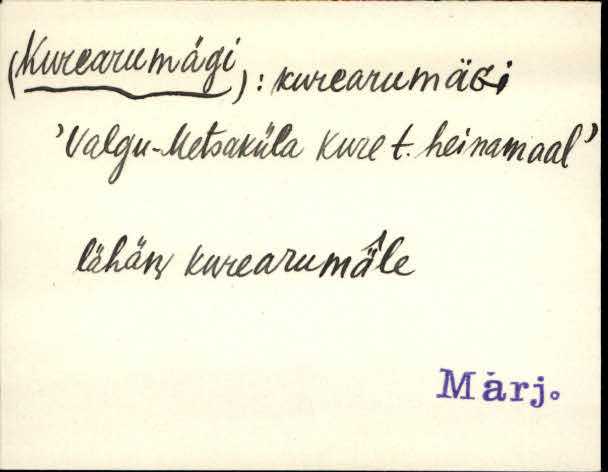 (Kurearumägi): kurearumäGi
'Valgu-Metsaküla Kure t. heinamaal'
lähän kurearumä̂le
Märj.